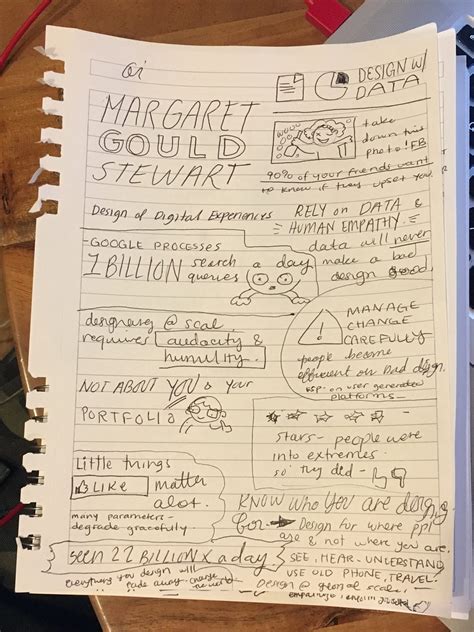 oi
MARGARET
GOULD
STEWART
Design of Digital Experiences
GOOGLE PROCESSES
1 BILLION search a day
queries
designing @ scal
requires audacity &
humility.
NOT ABOUT YOU & your
PORTFOLIO
Little things
LIKE matter
alot.
many parameters -
degrade gracefully.
seen 22 BILLION x a day
everything you design will
fade away. change
DESIGN W/
DATA
take
down this
photo! FB
90% of your friends want
to know if they upset you
RELY on DATA &
HUMAN EMPATHY.
data will never
make a bad
design good.
MANAGE
CHANGE
CAREFULLY
people become
efficient on bad design.
esp. on user generated
platforms
stars - people were
into extremes
so they did -
KNOW who YOU are desiging
for Design for where ppl
are & not where you are.
SEE, HEAR, UNDERSTAND
USE OLD PHONE, TRAVEL.
Design @ global scale,